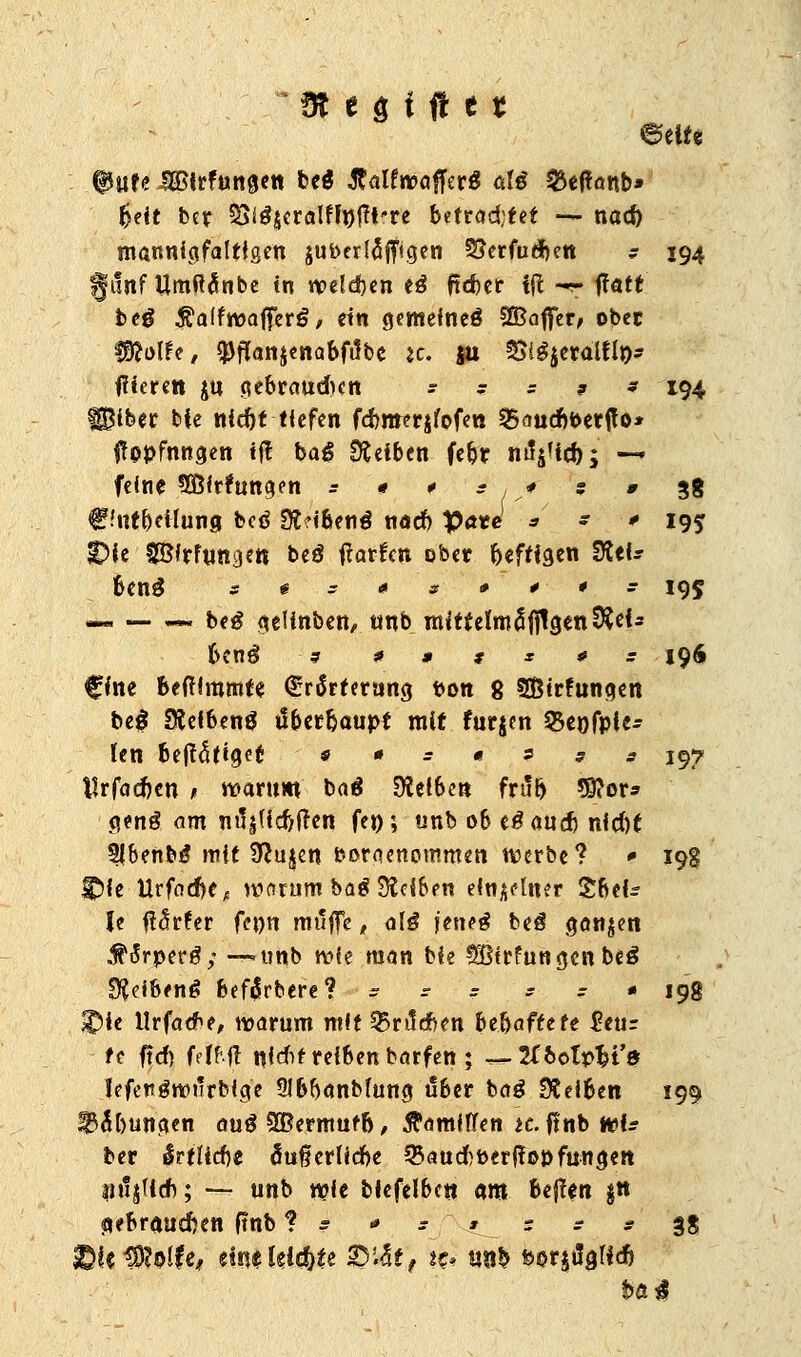 Register
Seite
Gute Wirkungen des Kalkwassers als Bestand-
heit der Viszeralklystiere betrachtet — nach
mannigfaltigen zuverlässigen Versuchen - 194
Fünf Umstände in welchen es sicher ist — statt
des Kalkwassers, ein gemeines Wasser, oder
Molke, Pflanzenabsüde ꝛc. zu Viszeralkly-
stieren zu gebrauchen - - - - - 194
Wider die nicht tiefen schmerzlosen Bauchversto-
stopfnngen ist das Reiben sehr nüzlich; —
seine Wirkungen - - - - - - - 38
Eintheilung des Reibens nach Pare - - - 195
Die Wirkungen des starken oder heftigen Rei-
bens - - - - - - - - - 195
— — — des gelinden, und mittelmässigen Rei-
bens - - - - - - - 196
Eine bestimmte Erörterung von 8 Wirkungen
des Reibens überhaupt mit kurzen Beyspie-
len bestätiget - - - - - - - 197
Ursachen, warum das Reiben früh Mor-
gens am nüzlichsten sey; und ob es auch nicht
Abends mit Nuzen vorgenommen werde? - 198
Die Ursache, warum das Reiben einzelner Thei-
le stärker seyn müsse, als jenes des ganzen
Körpers; — und wie man die Wirkungen des
Reibens befördere? - - - - - - 198
Die Ursache, warum mit Brüchen behaftete Leu-
te sich selbst nicht reiben darfen; — Adolphi's
lesenswürdige Abhandlung über das Reiben 199
Bähungen aus Wermuth, Kamillen ꝛc. sind wi-
der örtliche äußerliche Bauchverstopfungen
nüzlich; — und wie dieselben am besten zu
gebrauchen sind? - - - - - - - 38
Die Molke, eine leichte Diät, ꝛc. und vorzüglich
das